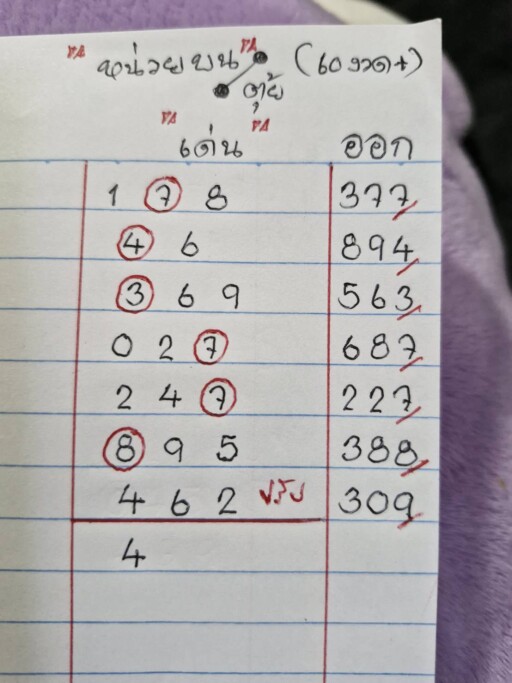 หน่วยบน ตุ้ย (60งวด+)
เด่น ออก
1 7 8 377
4 6 894
3 6 9 563
0 2 7 687
2 4 7 227
8 9 5 388
4 6 2 ปรับ 309
4